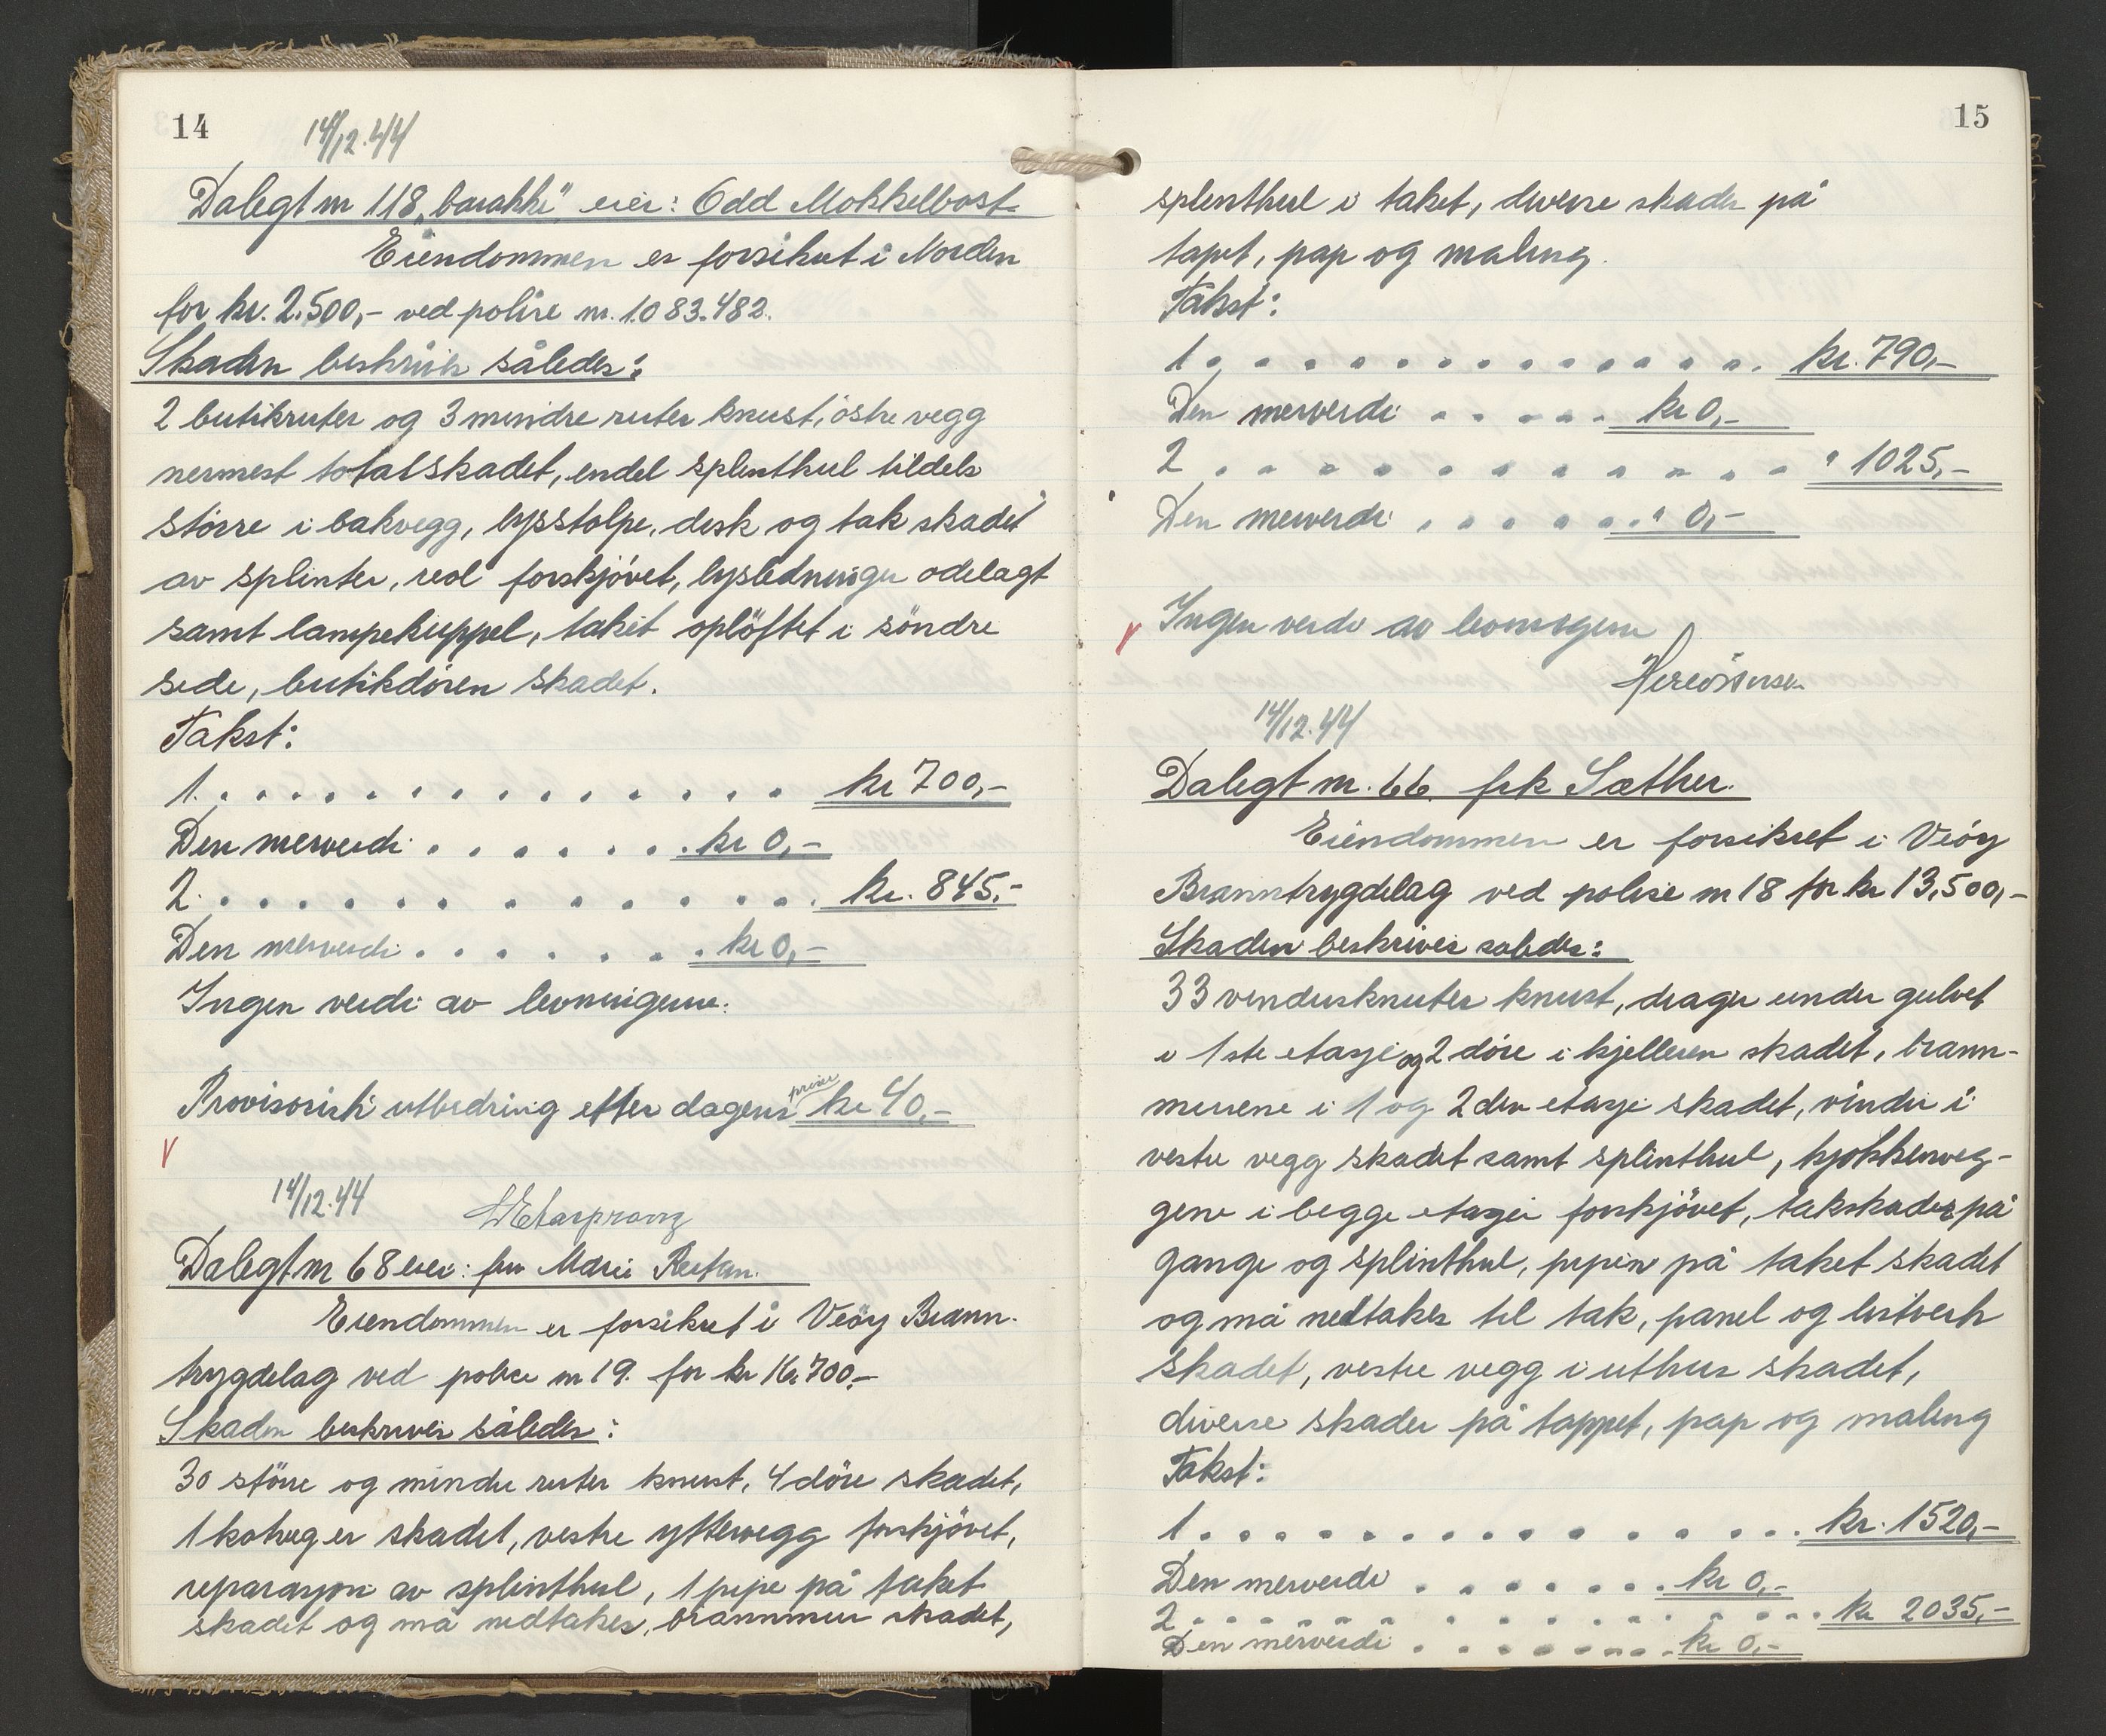 14
14/12.44
Dalegt nr 118 „barakke" eier: Odd Mokkelbost
Eiendommen er forsikret i Norden
for kr. 2.500,- ved polise nr. 1.083.482.
Skaden beskrives således:
2 butikruter og 3 mindre ruter knust, östre vegg
nermest totalskadet, endel splinthul tildels
större i bakvegg, lysstolpe, desk og tak skadet
av splinter, reol forskjövet, lysledninger ödelagt
samt lampekuppel, taket oplöftet i söndre
side, butikdören skadet.
Takst:
1. . . . . . . . . . . . . . . kr 700,-
Den merverdi . . . . . . . kr 0,-
2. . . . . . . . . . . . . . . kr. 845.-
Den merverdi . . . . . . . kr 0,-
Ingen verdi av levningene.
Provisorisk utbedring efter dagens priser kr 40,-
14/12.44
Dalegt nr 68 eier: fru Marie Restan.
Eiendommen er forsikret i Veöy Brann-
trygdelag ved police nr 19. for kr 16.700.-
Skaden beskrives således:
30 större og mindre ruter knust, 4 döre skadet,
1 kotveg er skadet, vestre yttervegg forskjövet,
reparasjon av splinthul, 1 pipe på taket
skadet og må nedtakes, brannmur skadet,
15
splinthul i taket, diverse skader på
tapet, pap og maling.
Takst:
1. . . . . . . . . . . . . . . kr. 790,-
Den merverdi . . . . . . kr 0,-
2 . . . . . . . . . . . . . . " 1025,-
Den merverdi . . . . . . . " 0,-
Ingen verdi av levningene
14/12.44
Dalegt nr. 66. frk Sæther.
Eiendommen er forsikret i Veöy
Branntrygdelag ved polise nr 18 for kr 13.500,-
Skaden beskrives saledes:
33 vindusknuter knust, drager under gulvet
i 1ste etasje og 2 döre i kjelleren skadet, brann-
murene i 1 og 2den etasje skadet, vinder i
vestre vegg skadet samt splinthul, kjökkenveg-
gene i begge etasjer forskjövet, takskader på
gange og splinthul, pipen på taket skadet
og må nedtakes til tak, panel og listverk
skadet, vestre vegg i uthus skadet,
diverse skader på tappet, pap og maling
Takst:
1. . . . . . . . . . . . . . . . kr. 1520,-
Den merverdi . . . . . . . . kr 0,-
2. . . . . . . . . . . . . . . . kr 2035,-
Den merverdi . . . . . . . . kr 0,-